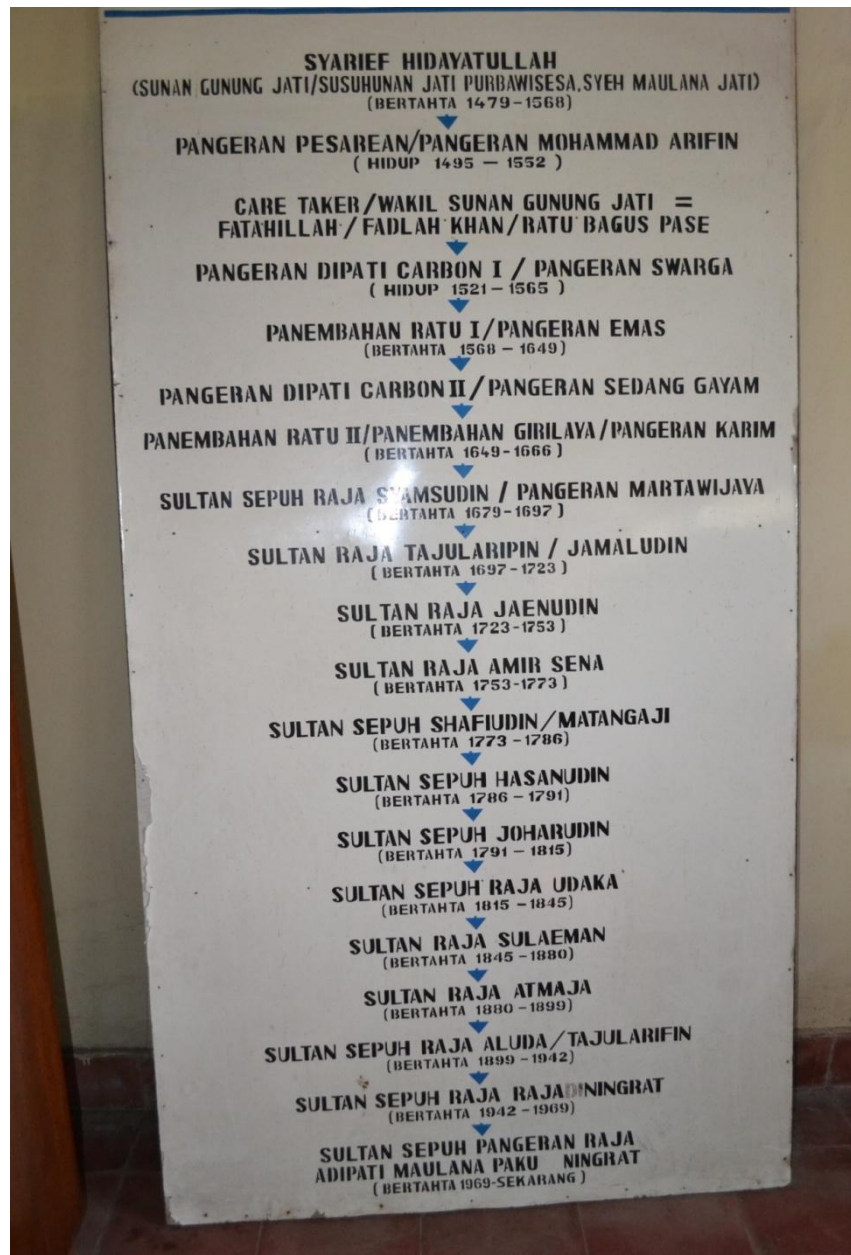 SYARIEF HIDAYATULLAH
(SUNAN GUNUNG JATI/SUSUHUNAN JATI PURBAWISESA, SYEH MAULANA JATI)
(BERTAHTA 1479-1568)
PANGERAN PESAREAN/PANGERAN MOHAMMAD ARIFIN
( HIDUP 1495 — 1552 )
CARE TAKER/WAKIL SUNAN GUNUNG JATI =
FATAHILLAH / FADLAH KHAN / RATU BAGUS PASE
PANGERAN DIPATI CARBON I / PANGERAN SWARGA
( HIDUP 1521 — 1565 )
PANEMBAHAN RATU I/PANGERAN EMAS
(BERTAHTA 1568 — 1649)
PANGERAN DIPATI CARBON II/PANGERAN SEDANG GAYAM
PANEMBAHAN RATU II/PANEMBAHAN GIRILAYA/PANGERAN KARIM
(BERTAHTA 1649-1666)
SULTAN SEPUH RAJA SYAMSUDIN / PANGERAN MARTAWIJAYA
(BERTAHTA 1679-1697)
SULTAN RAJA TAJULARIPIN / JAMALUDIN
( BERTAHTA 1697-1723 )
SULTAN RAJA JAENUDIN
( BERTAHTA 1723-1753 )
SULTAN RAJA AMIR SENA
( BERTAHTA 1753-1773 )
SULTAN SEPUH SHAFIUDIN/MATANGAJI
(BERTAHTA 1773 -1786)
SULTAN SEPUH HASANUDIN
(BERTAHTA 1786 — 1791)
SULTAN SEPUH JOHARUDIN
(BERTAHTA 1791 — 1815)
SULTAN SEPUH RAJA UDAKA
(BERTAHTA 1815 -1845)
SULTAN RAJA SULAEMAN
(BERTAHTA 1845 -1880)
SULTAN RAJA ATMAJA
(BERTAHTA 1880 -1899)
SULTAN SEPUH RAJA ALUDA/TAJULARIFIN
(BERTAHTA 1899 -1942)
SULTAN SEPUH RAJA RAJADININGRAT
(BERTAHTA 1942 -1969)
SULTAN SEPUH PANGERAN RAJA
ADIPATI MAULANA PAKU NINGRAT
( BERTAHTA 1969-SEKARANG )